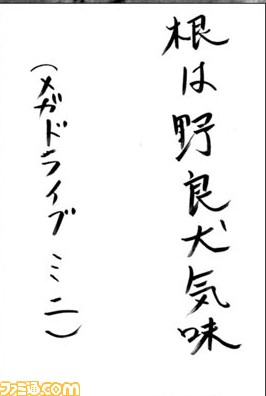 根は野良犬気味
(メガドライブ ミニ)
ファミ通.com